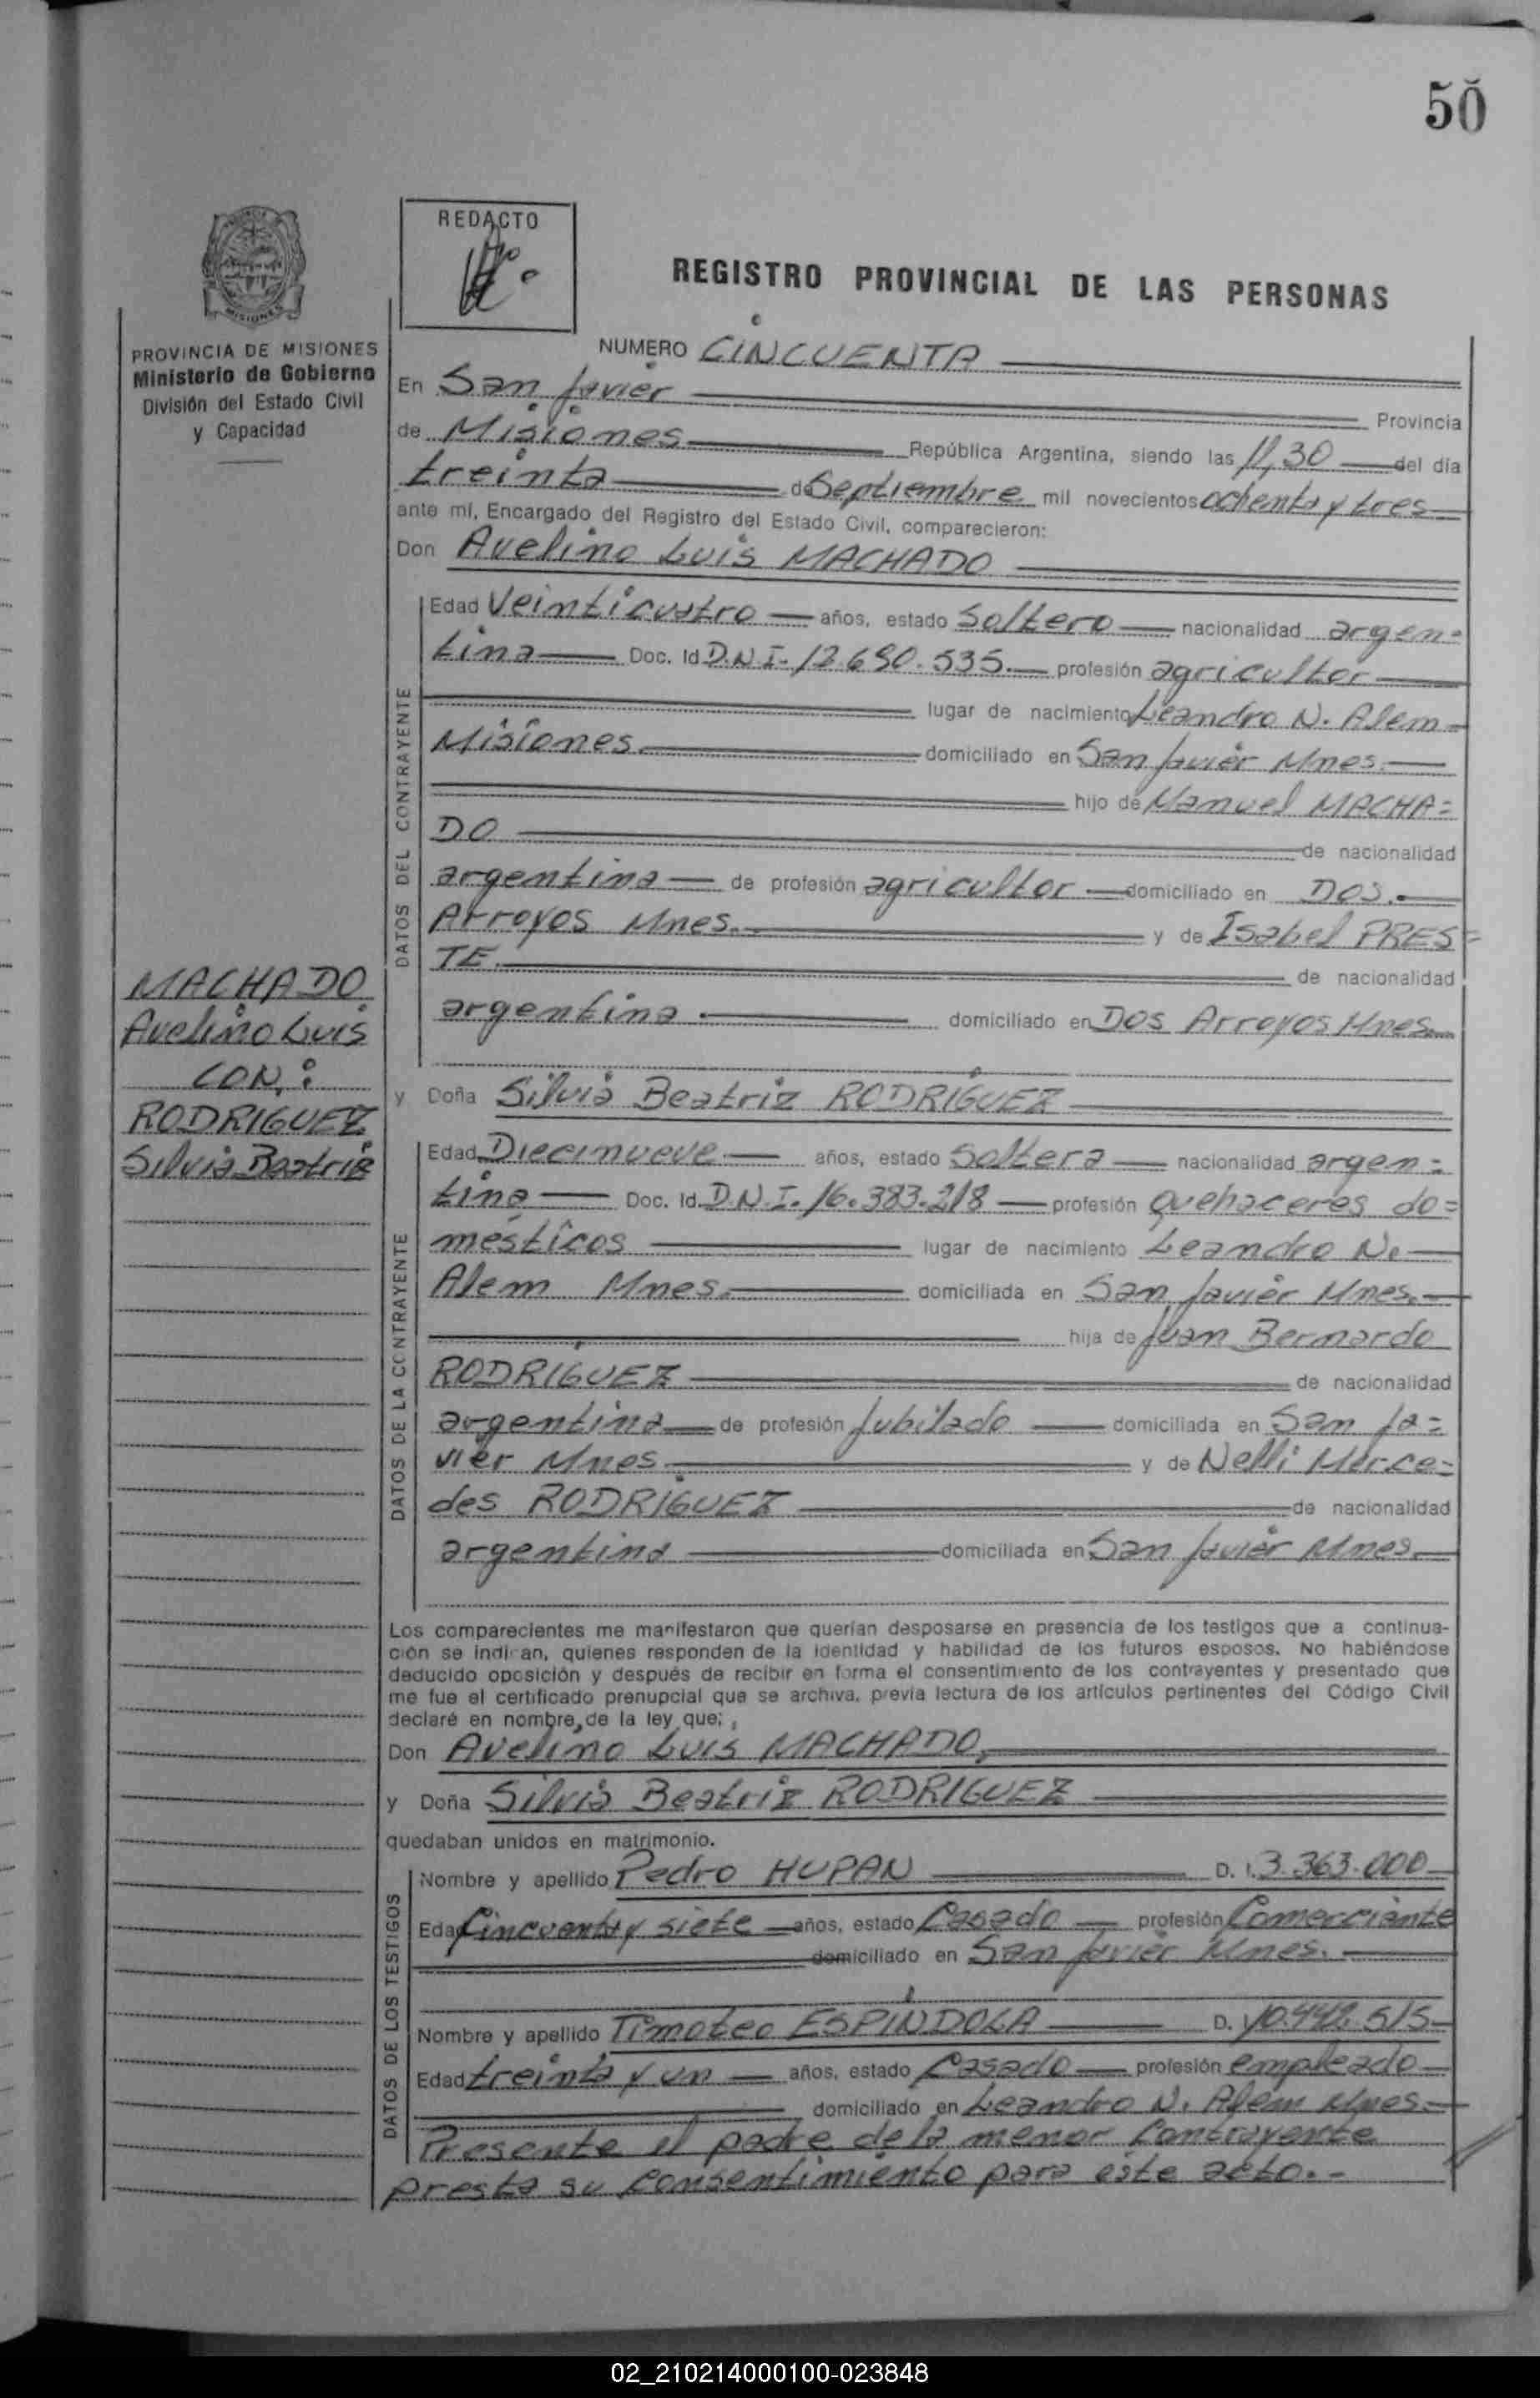 50
REDACTO
REGISTRO PROVINCIAL DE LAS PERSONAS
MISIONES
PROVINCIA DE MISIONES
Ministerio de Gobierno
División del Estado Civil
y Capacidad
NUMERO CINCUENTA
En San Javier Provincia
de Misiones República Argentina, siendo las 11,30 del día
treinta de Septiembre mil novecientos ochenta y tres
ante mí, Encargado del Registro del Estado Civil, comparecieron:
Don Avelino Luis MACHADO
DATOS DEL CONTRAYENTE
Edad Veinticuatro años, estado Soltero nacionalidad argen=
tina Doc. Id. D.N.I. 12.690.535. profesión agricultor
lugar de nacimiento Leandro N. Alem
Misiones. domiciliado en San Javier Mnes.
hijo de Manuel MACHA=
DO de nacionalidad
argentina de profesión agricultor domiciliado en DOS.
Arroyos Mnes. y de Isabel PRES=
TE. de nacionalidad
argentina. domiciliado en Dos Arroyos Mnes.
MACHADO
Avelino Luis
CON:
RODRIGUEZ
Silvia Beatriz
y Doña Silvia Beatriz RODRIGUEZ
DATOS DE LA CONTRAYENTE
Edad Diecinueve años, estado Soltera nacionalidad argen=
tina Doc. Id. D.N.I. 16.383.218 profesión quehaceres do=
mésticos lugar de nacimiento Leandro N.
Alem Mnes. domiciliada en San Javier Mnes.
hija de Juan Bernardo
RODRIGUEZ de nacionalidad
argentina de profesión Jubilado domiciliada en San Ja=
vier Mnes. y de Nelli Merce=
des RODRIGUEZ de nacionalidad
argentina domiciliada en San Javier Mnes.
Los comparecientes me manifestaron que querían desposarse en presencia de los testigos que a continua-
ción se indican, quienes responden de la identidad y habilidad de los futuros esposos. No habiéndose
deducido oposición y después de recibir en forma el consentimiento de los contrayentes y presentado que
me fue el certificado prenupcial que se archiva, previa lectura de los artículos pertinentes del Código Civil
declaré en nombre de la ley que:
Don Avelino Luis MACHADO,
y Doña Silvia Beatriz RODRIGUEZ
quedaban unidos en matrimonio.
DATOS DE LOS TESTIGOS
Nombre y apellido Pedro HUPAN D. I. 3.363.000
Edad Cincuenta y siete años, estado Casado profesión Comerciante
domiciliado en San Javier Mnes.
Nombre y apellido Timoteo ESPINDOLA D. 10.442.515
Edad treinta y un años, estado Casado profesión empleado
domiciliado en Leandro N. Alem Mnes.
Presente el padre de la menor Contrayente
presta su consentimiento para este acto.-
02_210214000100-023848